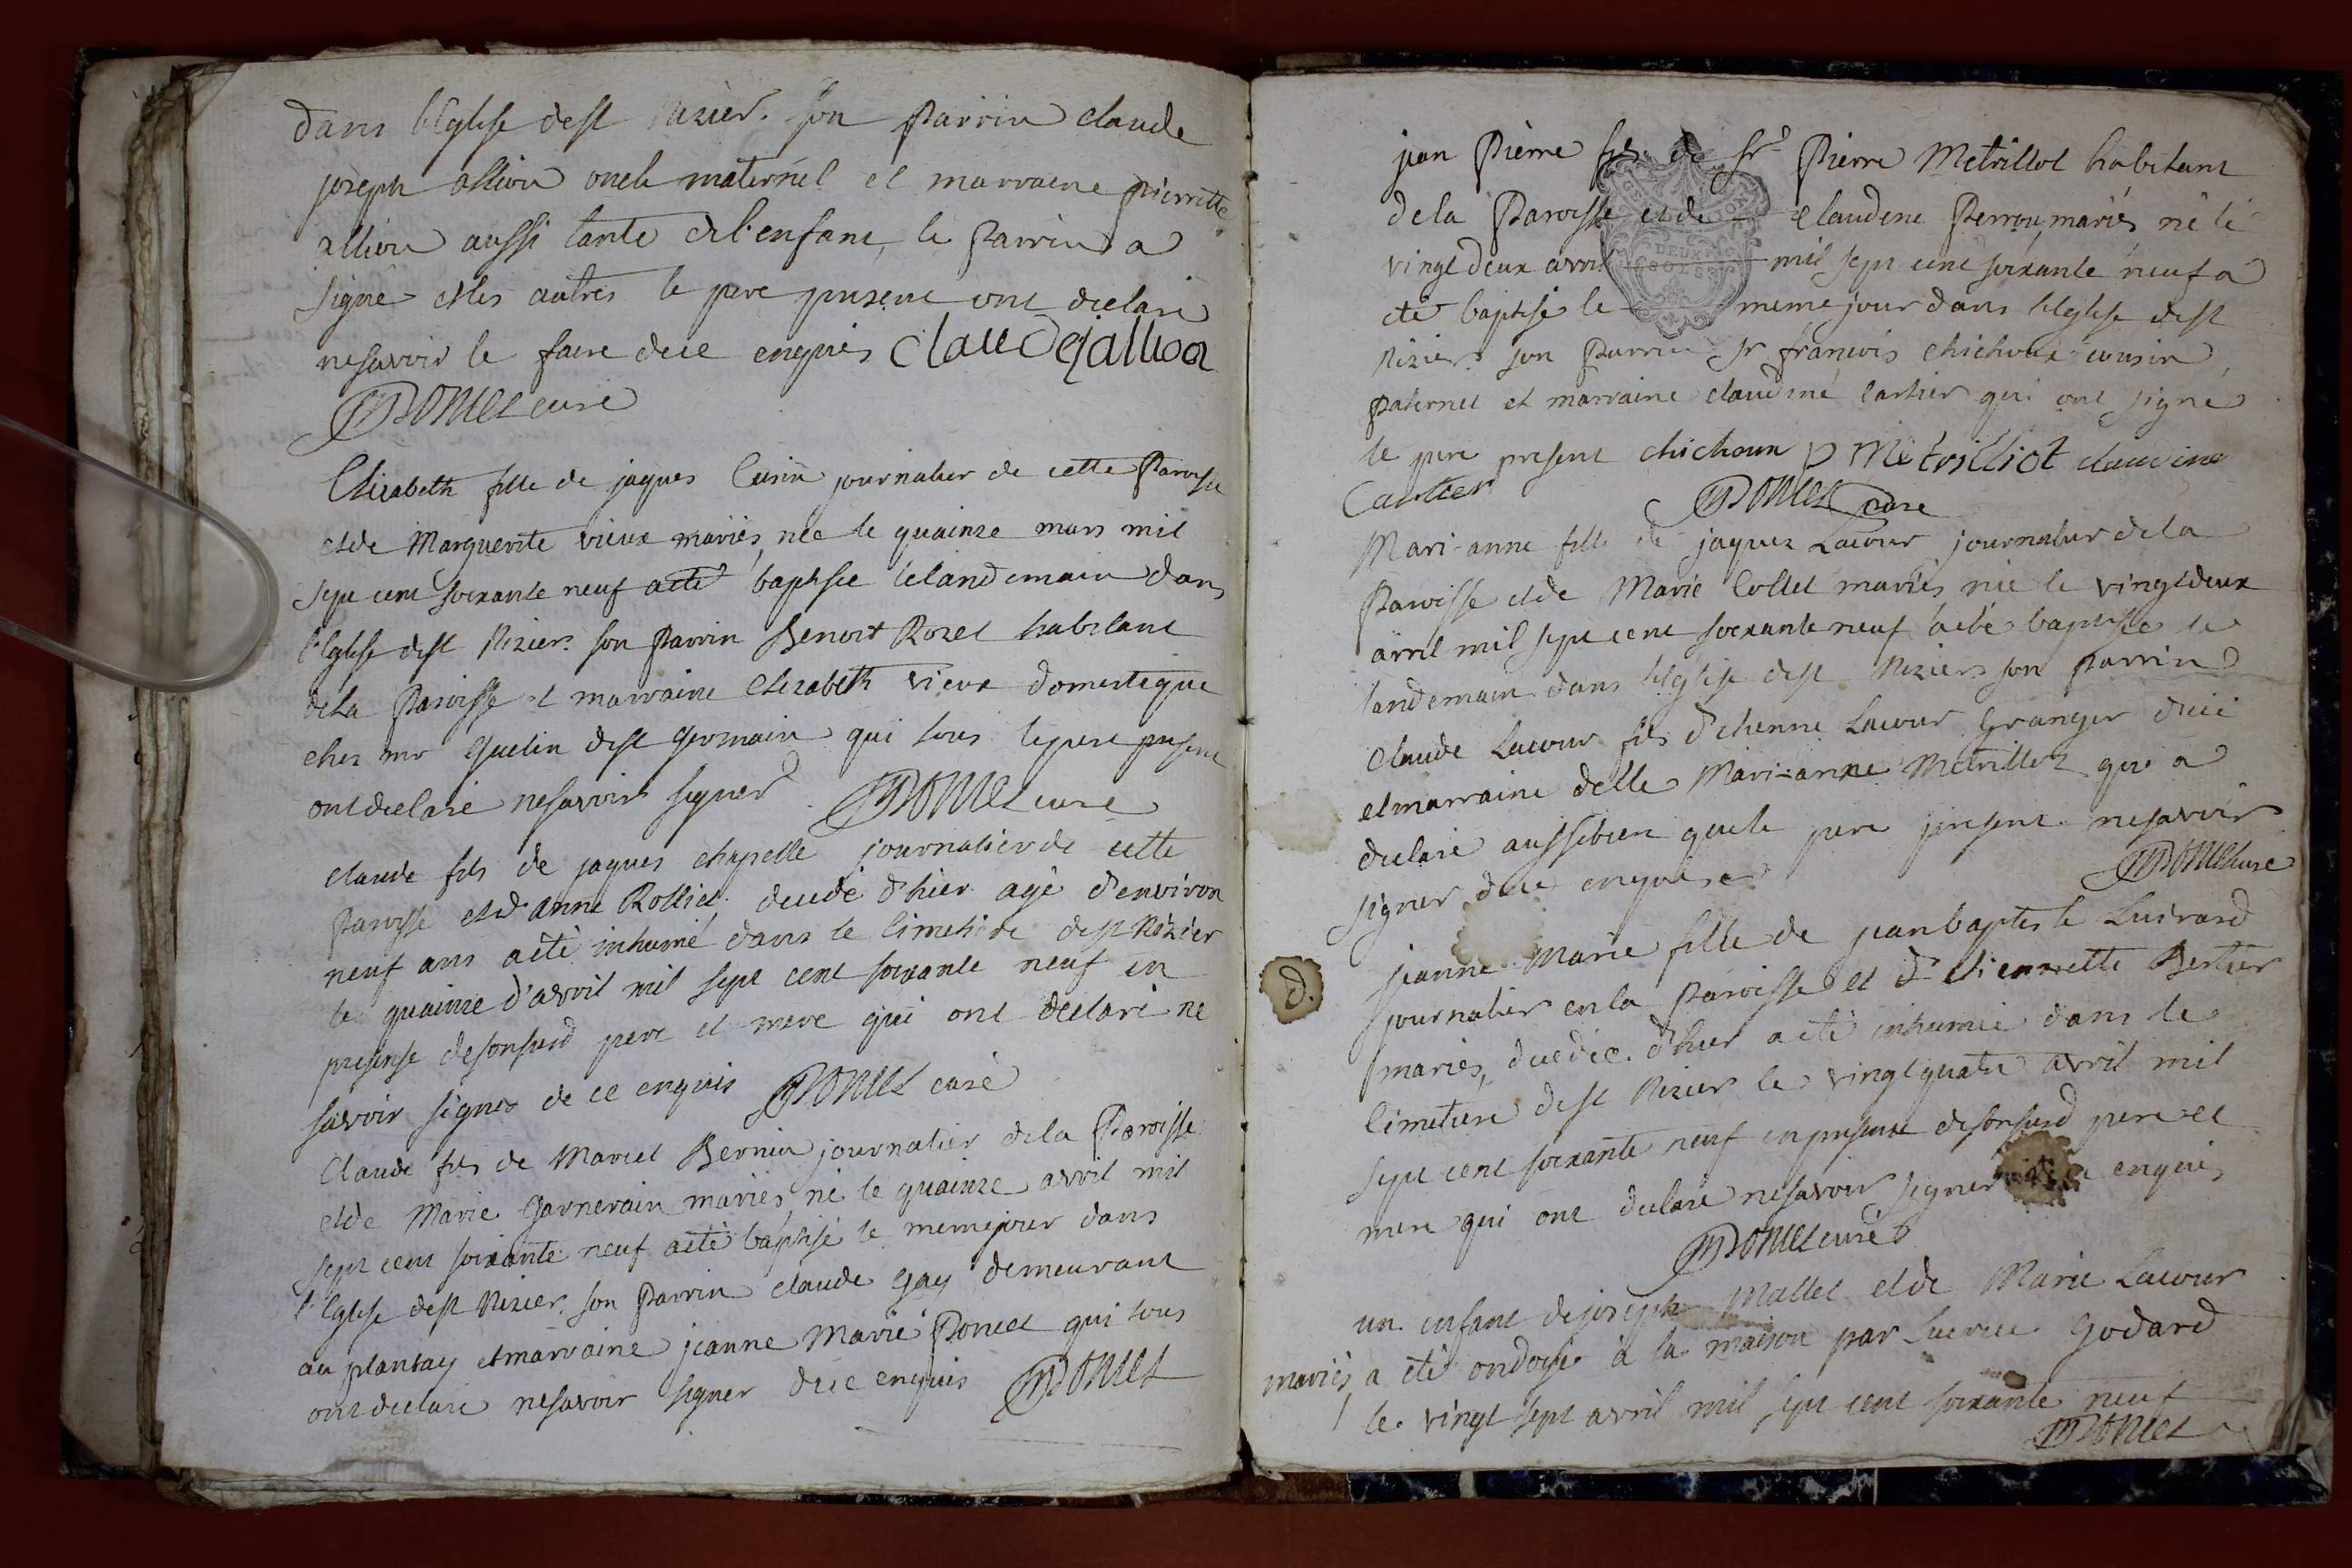 dans l'Eglise de st Nizier. son Parrin claude
joseph allion oncle maternel et marraine pierrette
allion aussi tante de l'enfant, le Parrin a
signé et les autres le pere present ont declaré
ne savoir le faire de ce enquis Claude jallion
Poncet curé
Elizabeth fille de jaques Cusin journalier de cette Paroisse
et de Marguerite vieux mariés, née le quainze mars mil
sept cent soixante neuf a eté baptisée le landemain dans
l'Eglise de st Nizier. son Parrin Benoit Rozet habitant
de la Paroisse et marraine Elizabeth vieux domestique
chez mr Guelin de st Germain qui tous le pere present
ont declaré ne savoir signer Poncet curé
claude fils de jaques chapelle journalier de cette
Paroisse et d'anne Rolliet. decedé d'hier agé d'environ
neuf ans a eté inhumé dans le Cimetiere de st Nizier
le quainze d'avril mil sept cent soixante neuf en
presense de son susd pere et mere qui ont declaré ne
savoir signer de ce enquis Poncet curé
Claude fils de Marcel Bernin journalier de la Paroisse
et de Marie Garnerain mariés, né le quainze avril mil
sept cent soixante neuf a eté baptisé le meme jour dans
l'Eglise de st Nizier. son Parrin claude Gay demeurant
au plantay et marraine jeanne Marie Poncet qui tous
ont declaré ne savoir signer de ce enquis Poncet
jean Pierre fils de sr Pierre Metrillot habitant
de la Paroisse et de claudine Perron mariés né le
vingt deux avril mil sept cent soixante neuf a
eté baptisé le meme jour dans l'Eglise de st
Nizier. son Parrin sr françois chichoux cousin
paternel et marraine claudine Cartier qui ont signé
le pere present chichoux P Metrilliot claudine
Cartier Poncet curé
Mari-anne fille de jaques Lacour journalier de la
Paroisse et de Marie Collet mariés née le vingt deux
avril mil sept cent soixante neuf a eté baptisée le
landemain dans l'Eglise de st Nizier son Parrin
Claude Lacour fils d'etienne Lacour Granger d'ici
et marraine delle Mari-anne Metrillot qui a
declaré aussi bien que le pere present ne savoir
signer de ce enquise Poncet curé
jeanne Marie fille de jean baptiste Luirard
d.
journalier en la Paroisse et d' Pierrette Bertier
mariés, decedée d'hier a eté inhumée dans le
Cimetiere de st Nizier le vingt quatre avril mil
sept cent soixante neuf en presense de son susd pere et
mere qui ont declaré ne savoir signer enquis
Poncet curé
un enfant de joseph Mallet et de Marie Lacour
mariés, a eté ondoyé à la maison par Godard
le vingt sept avril mil sept cent soixante neuf
Poncet
DEUX
SOLS